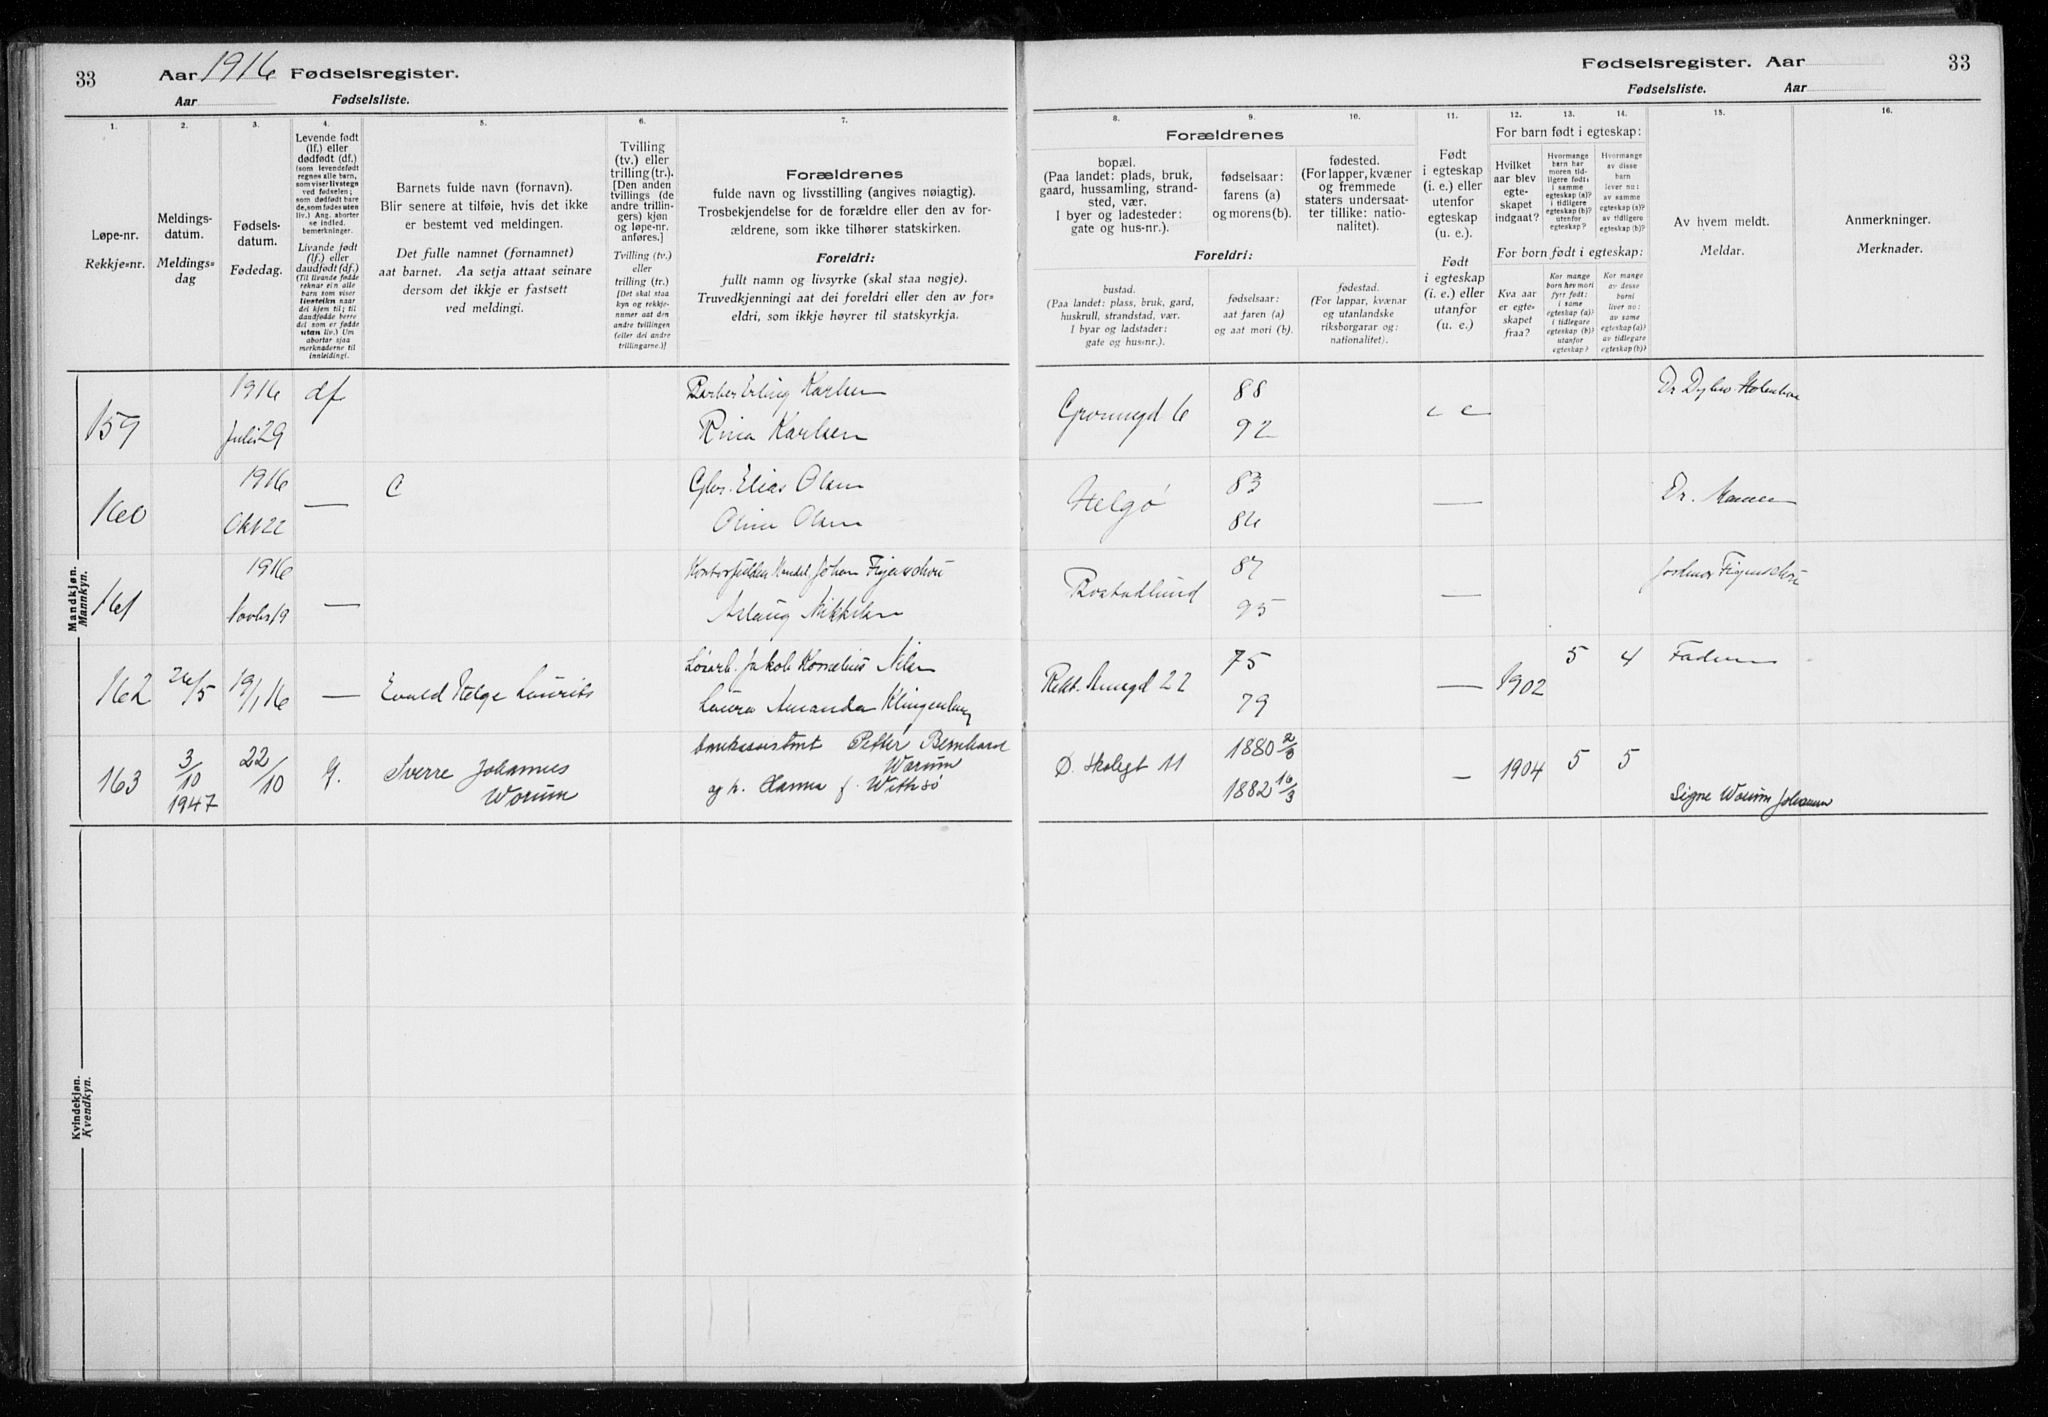 33 Aar 1916 Fødselsregister.
Aar Fødselsliste.
Fødselsregister. Aar 33
Fødselsliste. Aar
1.
Løpe-nr.
Rekkje-nr.
2.
Meldings-
datum.
Meldings-
dag
3.
Fødsels-
datum.
Fødedag.
4.
Levende født
(lf.) eller
dødfødt (df.)
(som levendefødt
regnes alle barn,
som viser livstegn
ved fødselen;
som dødfødt bare
de, som fødes uten
liv.) Ang. aborter
se indled.
bemerkninger.
Livande født
(lf.) eller
daudfødt (df.)
(Til livande fødde
reknar ein alle
barn som viser
livsteikn naar
dei kjem til; til
daudfødde berre
dei som er fødde
utan liv.) Um
abortar sjaa
merknaderne til
innleidingi.
5.
Barnets fulde navn (fornavn).
Blir senere at tilføie, hvis det ikke
er bestemt ved meldingen.
Det fulle namnet (fornamnet)
aat barnet. Aa setja attaat seinare
dersom det ikkje er fastsett
ved meldingi.
6.
Tvilling
(tv.) eller
trilling (tr.).
[Den anden
tvillings (de
andre trillin-
gers) kjøn
og løpe-nr.
anføres.]
Tvilling (tv.)
eller
trilling (tr.)
[Det skal staa
kyn og rekkje-
numer aat den
andre tvillingen
(eller dei andre
trillingarne.)]
7.
Forældrenes
fulde navn og livsstilling (angives nøiagtig).
Trosbekjendelse for de forældre eller den av for-
ældrene, som ikke tilhører statskirken.
Foreldri:
fullt namn og livsyrke (skal staa nøgje).
Truvedkjenningi aat dei foreldri eller den av for-
eldri, som ikkje høyrer til statskyrkja.
Forældrenes
8.
bopæl.
(Paa landet: plads, bruk,
gaard, hussamling, strand-
sted, vær.
I byer og ladesteder:
gate og hus-nr.).
9.
fødselsaar:
farens (a)
og morens (b).
10.
fødested.
(For lapper, kvæner
og fremmede
staters undersaat-
ter tillike: natio-
nalitet).
Foreldri:
bustad.
(Paa landet: plass, bruk, gard,
huskrull, strandstad, vær.
I byar og ladstader:
gate og hus-nr.).
fødselsaar:
aat faren (a)
og aat mori (b).
fødestad.
(For lappar, kvænar
og utanlandske
riksborgarar og:
nationalitet).
11.
Født
i egteskap
(i. e.) eller
utenfor
egteskap
(u. e.).
Født
i egteskap
(i. e.) eller
utanfor
(u. e.)
12. 13. 14.
For barn født i egteskap:
Hvilket
aar blev
egte-
skapet
indgaat?
Hvormange
barn har
moren tid-
ligere født:
i samme
egteskap (a)?
utenfor
egteskap (b)?
i tidligere
egteskap?
Hvormange
av disse
barn
lever nu:
av samme
egteskap (a)?
av tidligere
egteskap (b)?
For born født i egteskap:
Kva aar
er egte-
skapet
fraa?
Kor mange
born hev mori
fyrr født:
i same
egteskap (a)?
i tidlegare
egteskap (b)?
utanfor
egteskap?
Kor mange
av desse
borni
liver no:
av same
egteskap (a)?
av tidlegare
egteskap (b)?
15.
Av hvem meldt.
Meldar.
16.
Anmerkninger.
Merknader.
Mandkjøn.
Mannkyn.
159 1916 Juli 29 df Barber Erling Karlsen
Rina Karlsen
Grønnegd 6 88 92
160 1916 Okt 22 — Elias Olsen
Olsen
Helgø 83 86 — Dr.
161 1916 Novbr 19 — Johan Figenschou
Aslaug Nikkelsen
87 95 — Jordmor Figenschou
162 26/5 19/1 16 — Evald Helge Laurits Jakob Kornelius Nilsen
Laura Amanda Klingenberg
22 75 79 — 1902 5 4 Faderen
163 3/10 1947 22/10 Sverre Johannes
Worum
bankassistent Petter Bernhard
Worum
og h. Hanna f. Withsø
Ø. Skolegt 11 1880 2/3 1882 16/3 — 1904 5 5 Signe Worum Johansen
Kvindekjøn.
Kvendkyn.